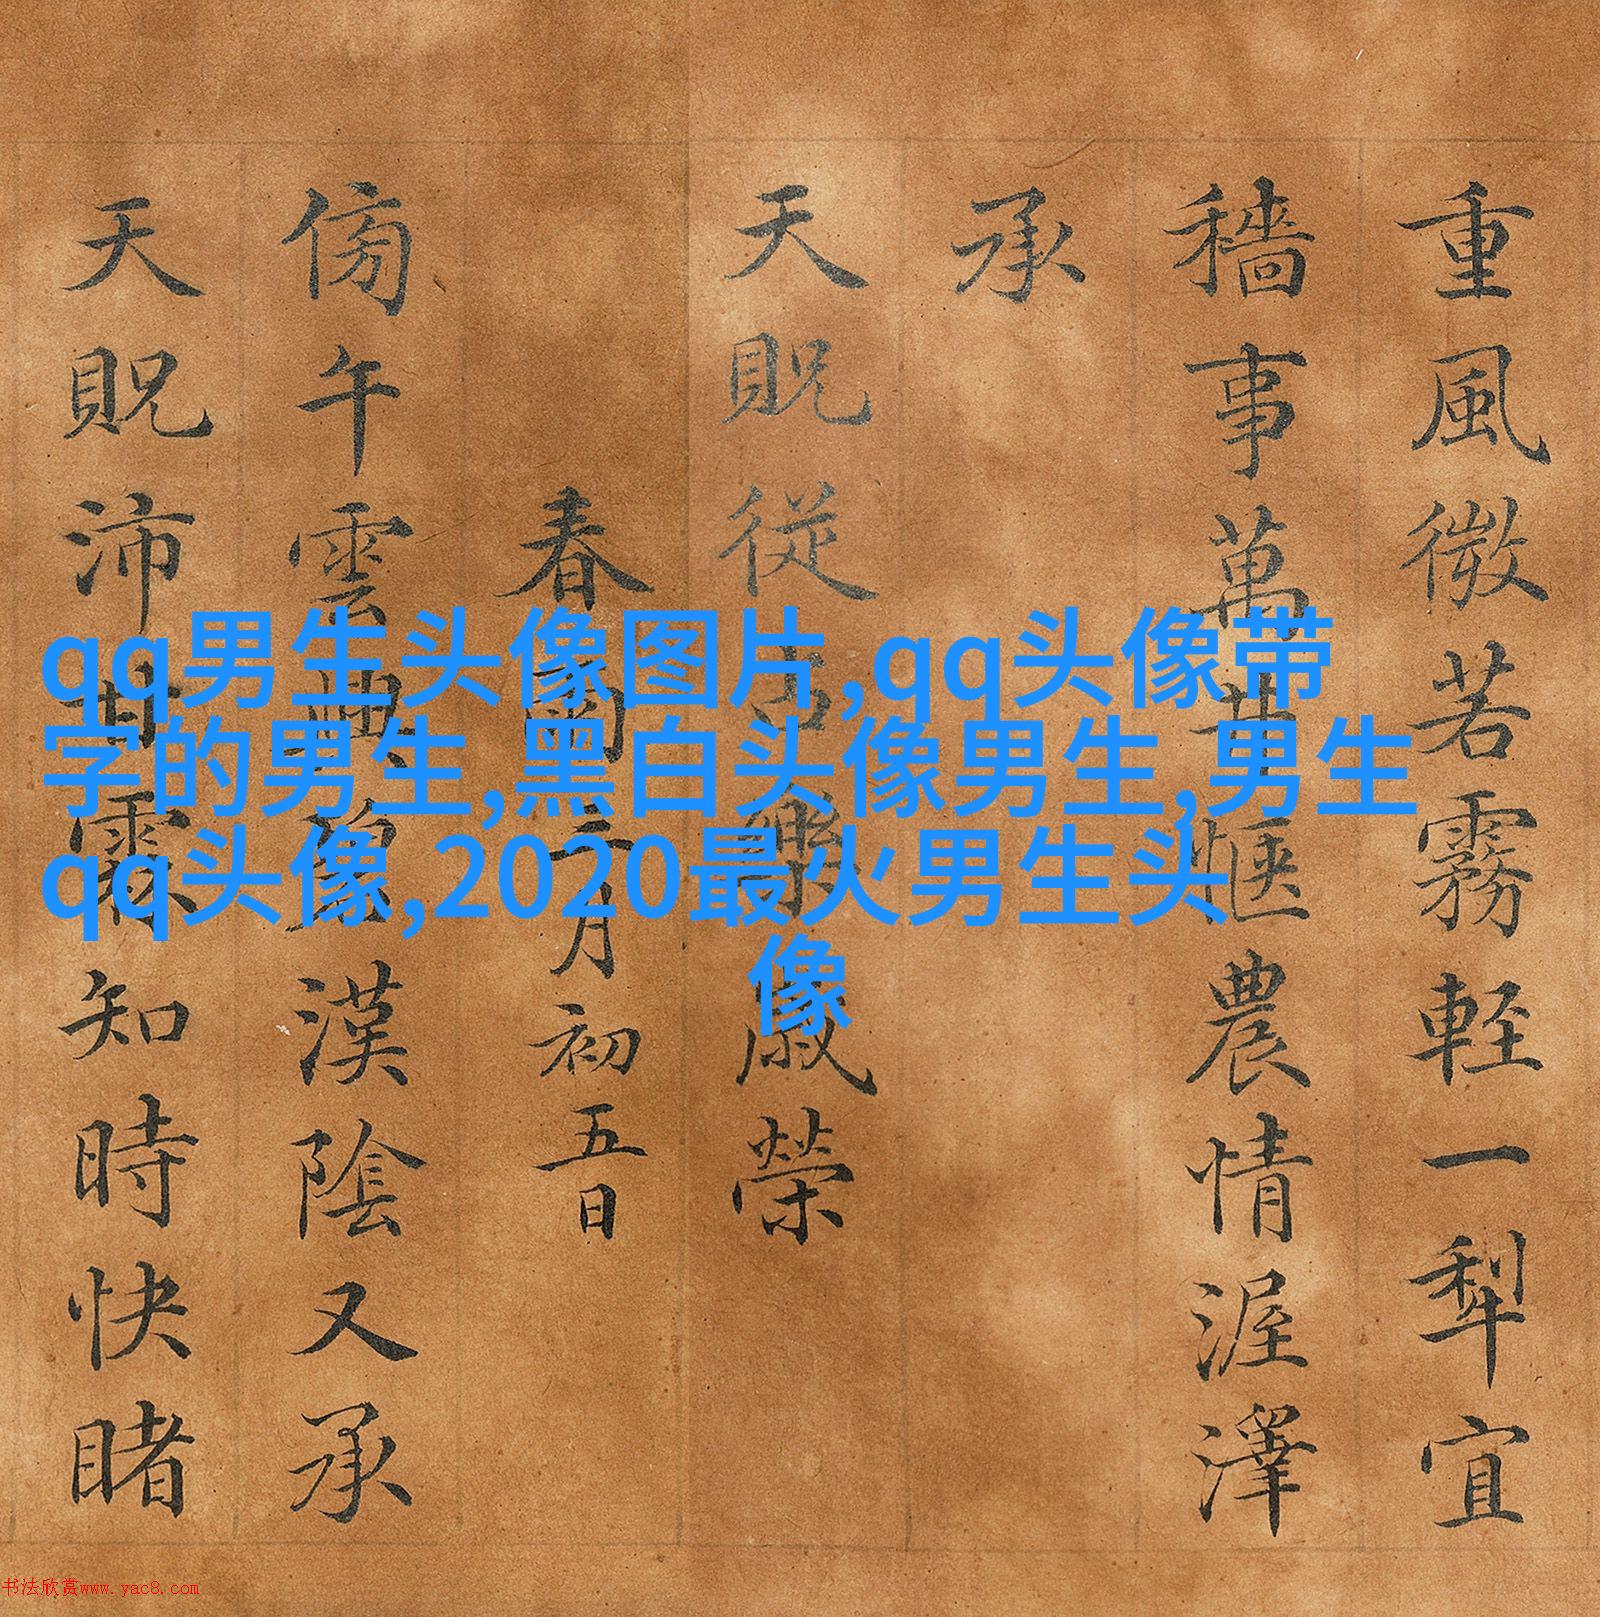 重風微若霧輕一犁宜
穡事萬井愜農情渥澤
承
天貺從樂歲榮
春月初五日
傍午雲漢陰又承
天貺沛甘霖知時快睹
qq男生头像图片,qq头像带
字的男生,黑白头像男生,男生
qq头像,2020最火男生头
像
书法欣赏www.yac8.com